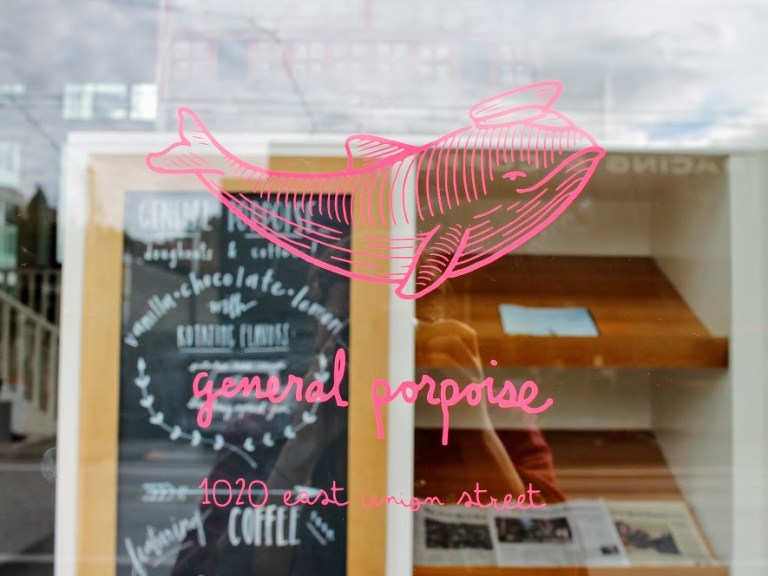 GENERAL PORPOISE
doughnuts & coffee!
vanilla • chocolate • lemon
with
ROTATING FLAVORS
general porpoise
1020 east union street
featuring
COFFEE